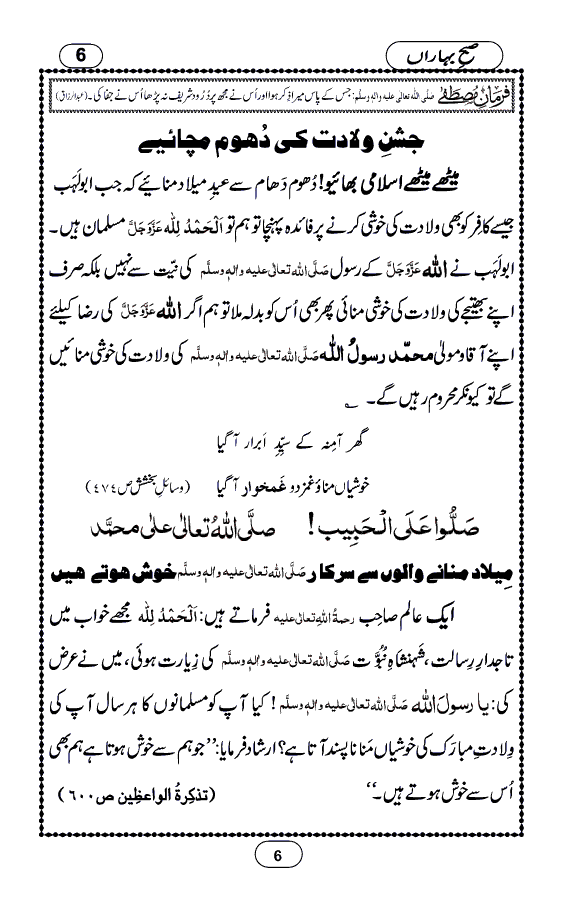 صبحِ بہاراں
6
فرمانِ مُصطَفٰے صلَّی اللہ تعالیٰ علیہ واٰلہٖ وسلَّم: جس کے پاس میرا ذکر ہوا اور اُس نے مجھ پر دُرُود شریف نہ پڑھا اُس نے جفا کی۔ (عبدالرزاق)
جشنِ ولادت کی دُھوم مچائیے
میٹھے میٹھے اسلامی بھائیو! دُھوم دَھام سے عیدِ میلاد منائیے کہ جب ابولَہَب
جیسے کافِر کو بھی وِلادت کی خوشی کرنے پر فائدہ پہنچا تو ہم تو اَلْحَمْدُ لِلّٰہ عَزَّوَجَلَّ مسلمان ہیں۔
ابولَہَب نے اللہ عَزَّوَجَلَّ کے رسول صَلَّی اللہ تعالیٰ علیہ واٰلہٖ وسلَّم کی نیّت سے نہیں بلکہ صرف
اپنے بھتیجے کی وِلادت کی خوشی منائی پھر بھی اُس کو بدلہ ملا تو ہم اگر اللہ عَزَّوَجَلَّ کی رِضا کیلئے
اپنے آقا و مولیٰ محمّد رسولُ اللہ صَلَّی اللہ تعالیٰ علیہ واٰلہٖ وسلَّم کی وِلادت کی خوشی منائیں
گے تو کیونکر محروم رہیں گے۔
گھر آمِنہ کے سیِّدِ اَبرار آ گیا
خوشیاں مناؤ غمزدو غمخوار آ گیا (وسائلِ بخشش ص۴۷۴)
صَلُّوا عَلَی الْحَبِیب! صلَّی اللہُ تعالٰی علٰی محمَّد
مِیلاد منانے والوں سے سرکار صَلَّی اللہ تعالیٰ علیہ واٰلہٖ وسلَّم خوش ہوتے ہیں
ایک عالم صاحِب رحمۃُ اللہِ تعالیٰ علیہ فرماتے ہیں: اَلْحَمْدُ لِلّٰہ مجھے خواب میں
تاجدارِ رِسالت، شَہَنشاہِ نُبُوَّت صَلَّی اللہ تعالیٰ علیہ واٰلہٖ وسلَّم کی زِیارت ہوئی، میں نے عرض
کی: یا رسولَ اللہ صَلَّی اللہ تعالیٰ علیہ واٰلہٖ وسلَّم! کیا آپ کو مسلمانوں کا ہر سال آپ کی
وِلادتِ مبارَک کی خوشیاں مَنانا پسند آتا ہے؟ ارشاد فرمایا: ’’جو ہم سے خوش ہوتا ہے ہم بھی
اُس سے خوش ہوتے ہیں۔‘‘ (تذکِرۃُ الواعظین ص ۶۰۰)
6